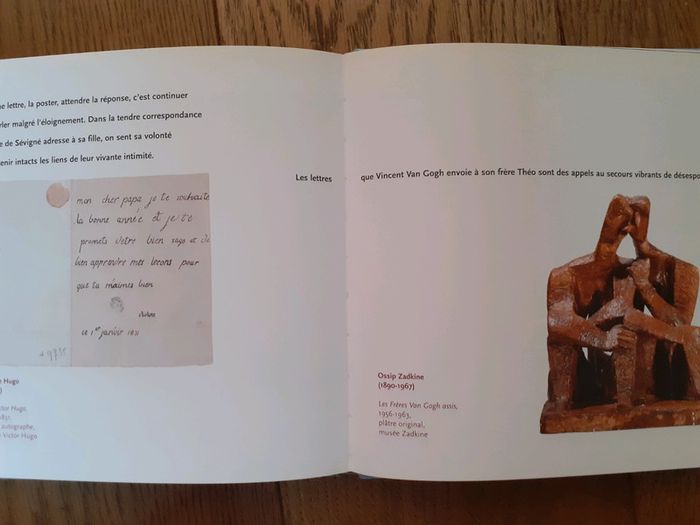 ne lettre, la poster, attendre la réponse, c'est continuer
rler malgré l'éloignement. Dans la tendre correspondance
e de Sévigné adresse à sa fille, on sent sa volonté
enir intacts les liens de leur vivante intimité.
mon cher papa je te souhaite
la bonne année et je te
promets d'etre bien sage et de
bien apprendre mes lecons pour
que tu m'aimes bien
ce 1er janvier 1831
e Hugo
ctor Hugo,
831,
autographe,
Victor Hugo
Les lettres que Vincent Van Gogh envoie à son frère Théo sont des appels au secours vibrants de désespo
Ossip Zadkine
(1890-1967)
Les Frères Van Gogh assis,
1956-1963,
plâtre original,
musée Zadkine